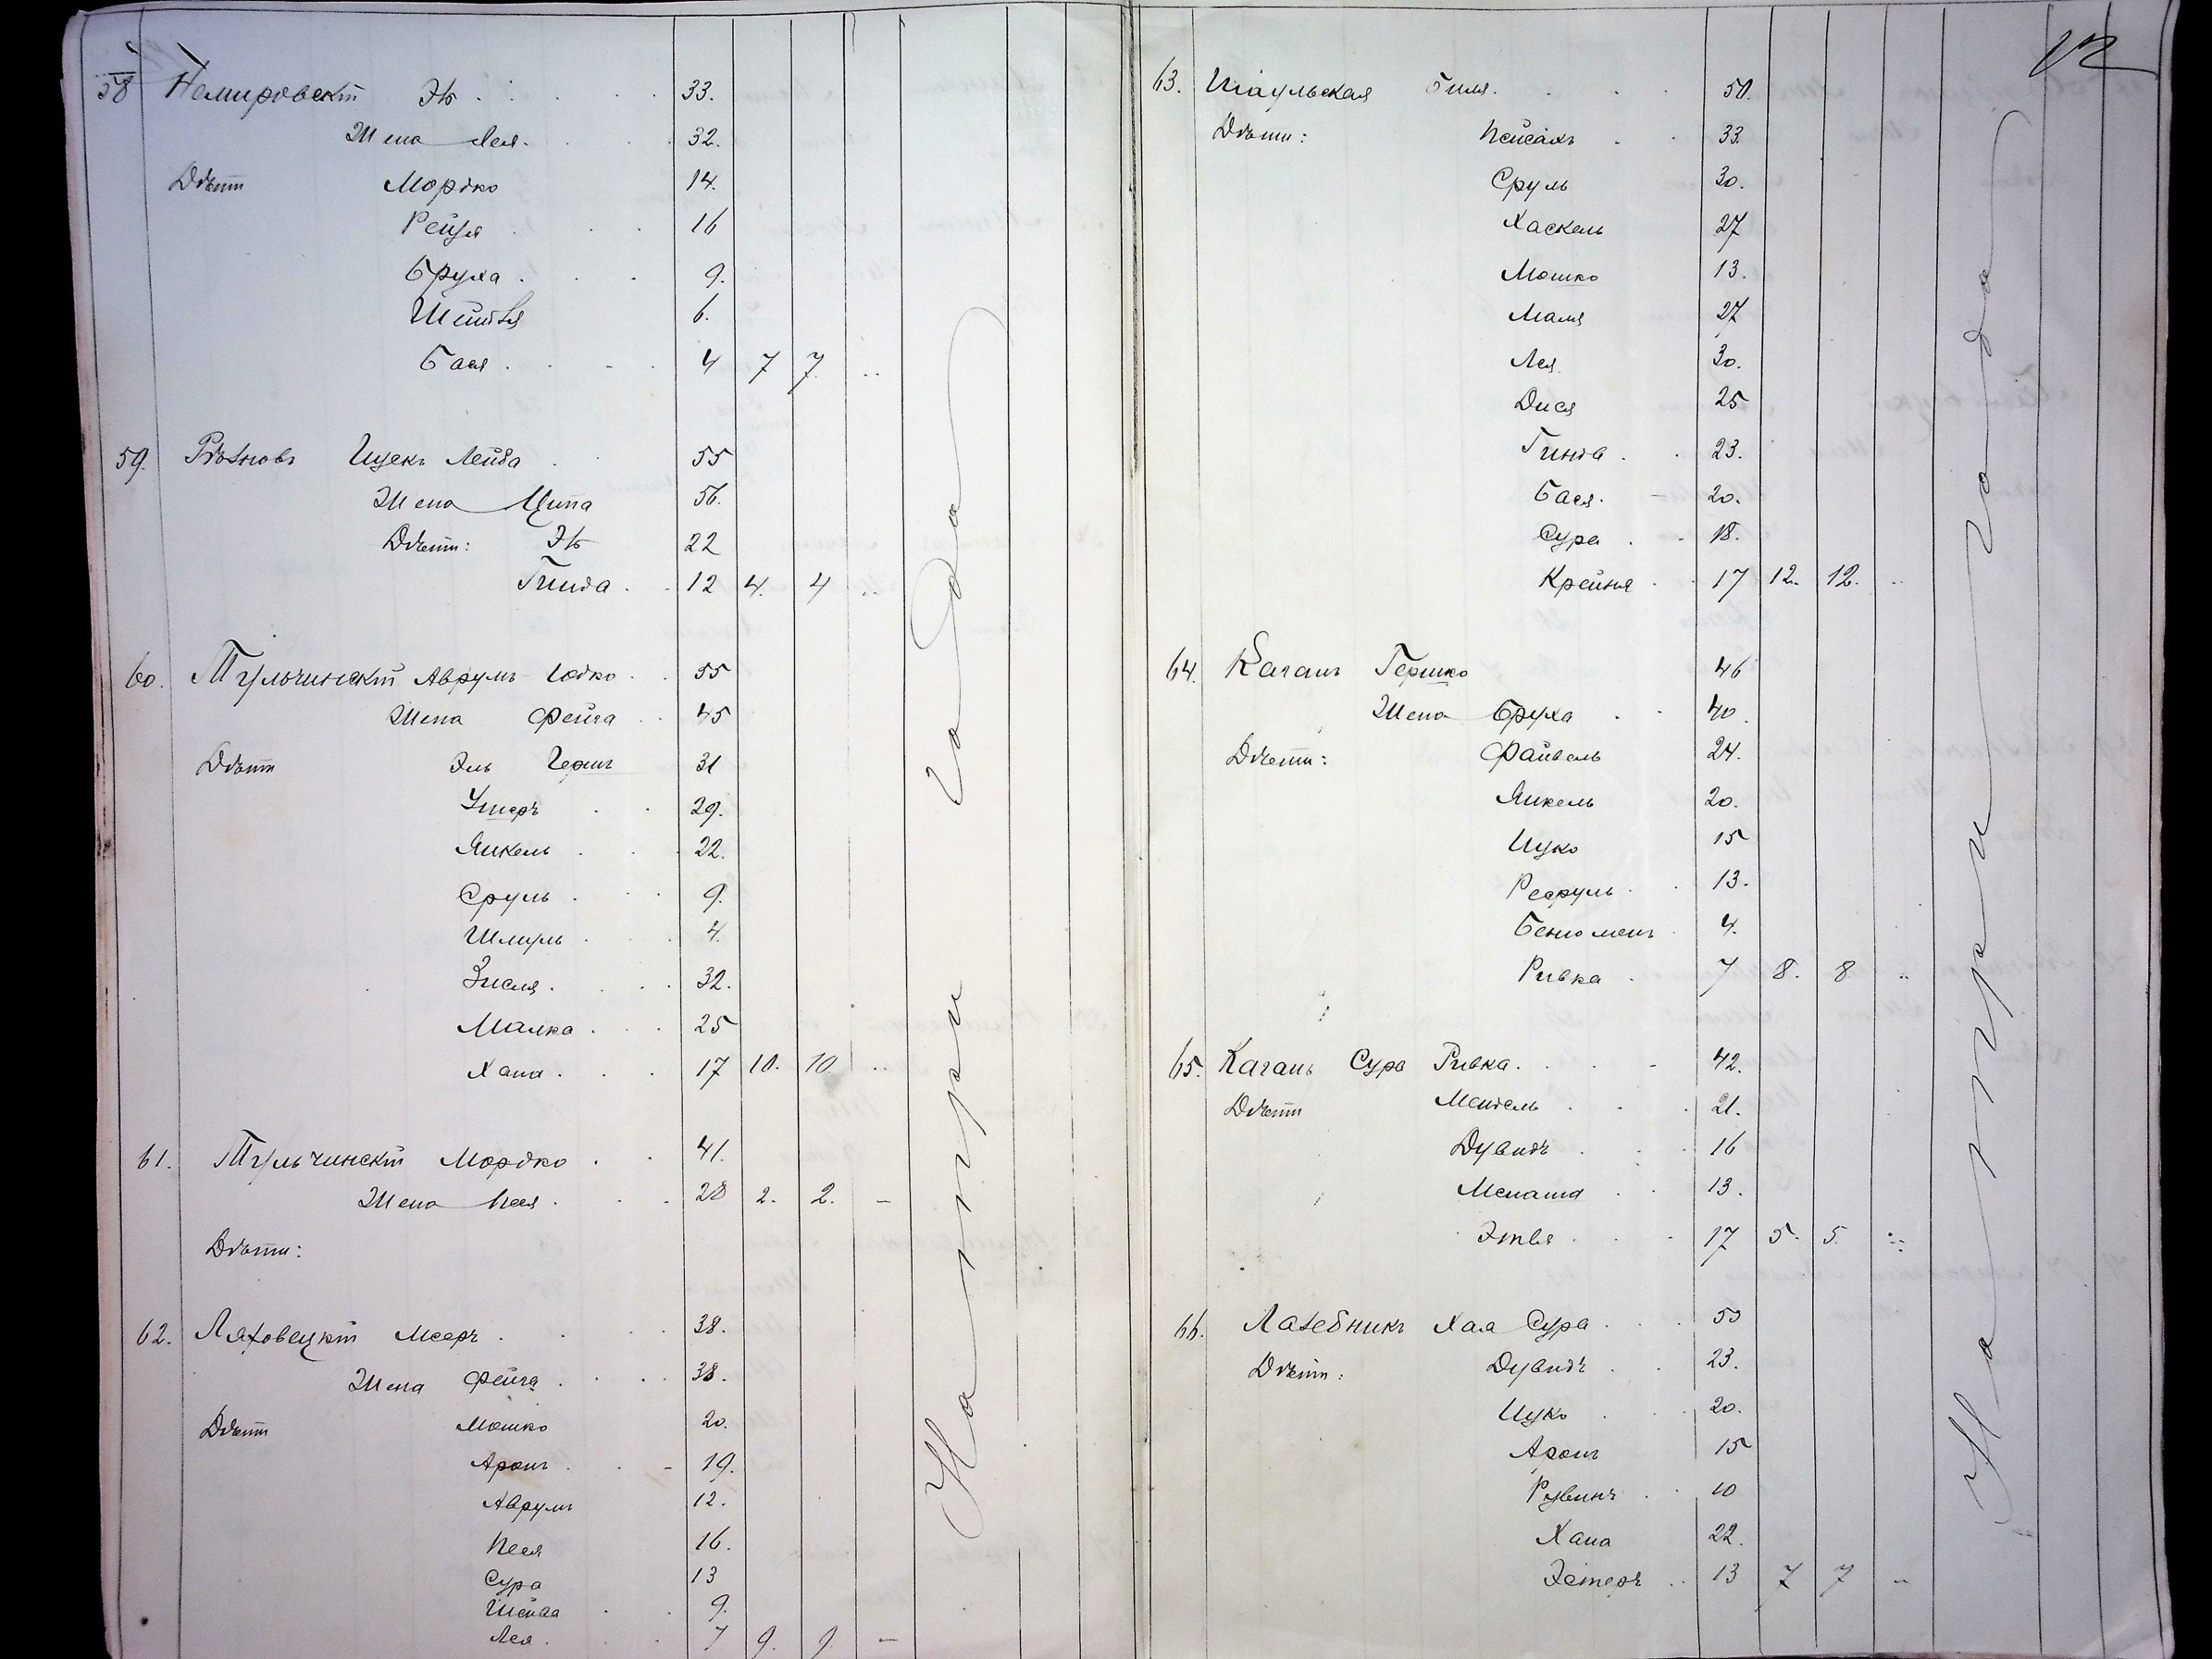 58 Немировскій Эль 33.
Жена Лея. 32.
Дѣти Мордко 14.
Рейзя 16
Бруха 9.
Шейндля 6.
Бася 4 7 7
59. Рѣзновъ Ицекъ Лейба 55
Жена Ципа 56.
Дѣти: Эль 22
Гинда 12 4. 4
60. Тульчинскій Аврумъ Іойко 55
Жена Фейга 45
Дѣти Эль Герш 31
Ушеръ 29.
Янкель 22.
Сруль 9.
Шмуль 4.
Зисля 32.
Малка 25
Хана 17 10. 10
61. Тульчинскій Мордко 41.
Жена Песя 28 2. 2. –
Дѣти:
62. Ляховецкій Мееръ 38.
Жена Фейга 38.
Дѣти Мошко 20.
Аронъ 19.
Аврумъ 12.
Песя 16.
Сура 13
Шейва 9.
Лея 7 9. 9 –
На три года
12
63. Шаульская Биля. 50.
Дѣти: Пейсахъ 33.
Сруль 30.
Хаскель 27
Мошко 13.
Маля 27
Лея 30.
Дися 25
Гинда 23.
Бася 20.
Сура 18.
Крейня 17 12. 12.
64. Каганъ Гершко 46
Жена Бруха 40
Дѣти: Файвель 24.
Янкель 20.
Ицко 15
13.
4.
Ривка 7 8. 8
65. Каганъ Сура Ривка 42.
Дѣти Мендель 21.
Дувидъ 16
Менаша 13.
Этля 17 5. 5.
66. Лазебникъ Хая Сура 53
Дѣти: Дувидъ 23.
Ицко 20.
Аронъ 15
Рувинъ 10
Хана 22.
Эстеръ 13 7 7
На три года